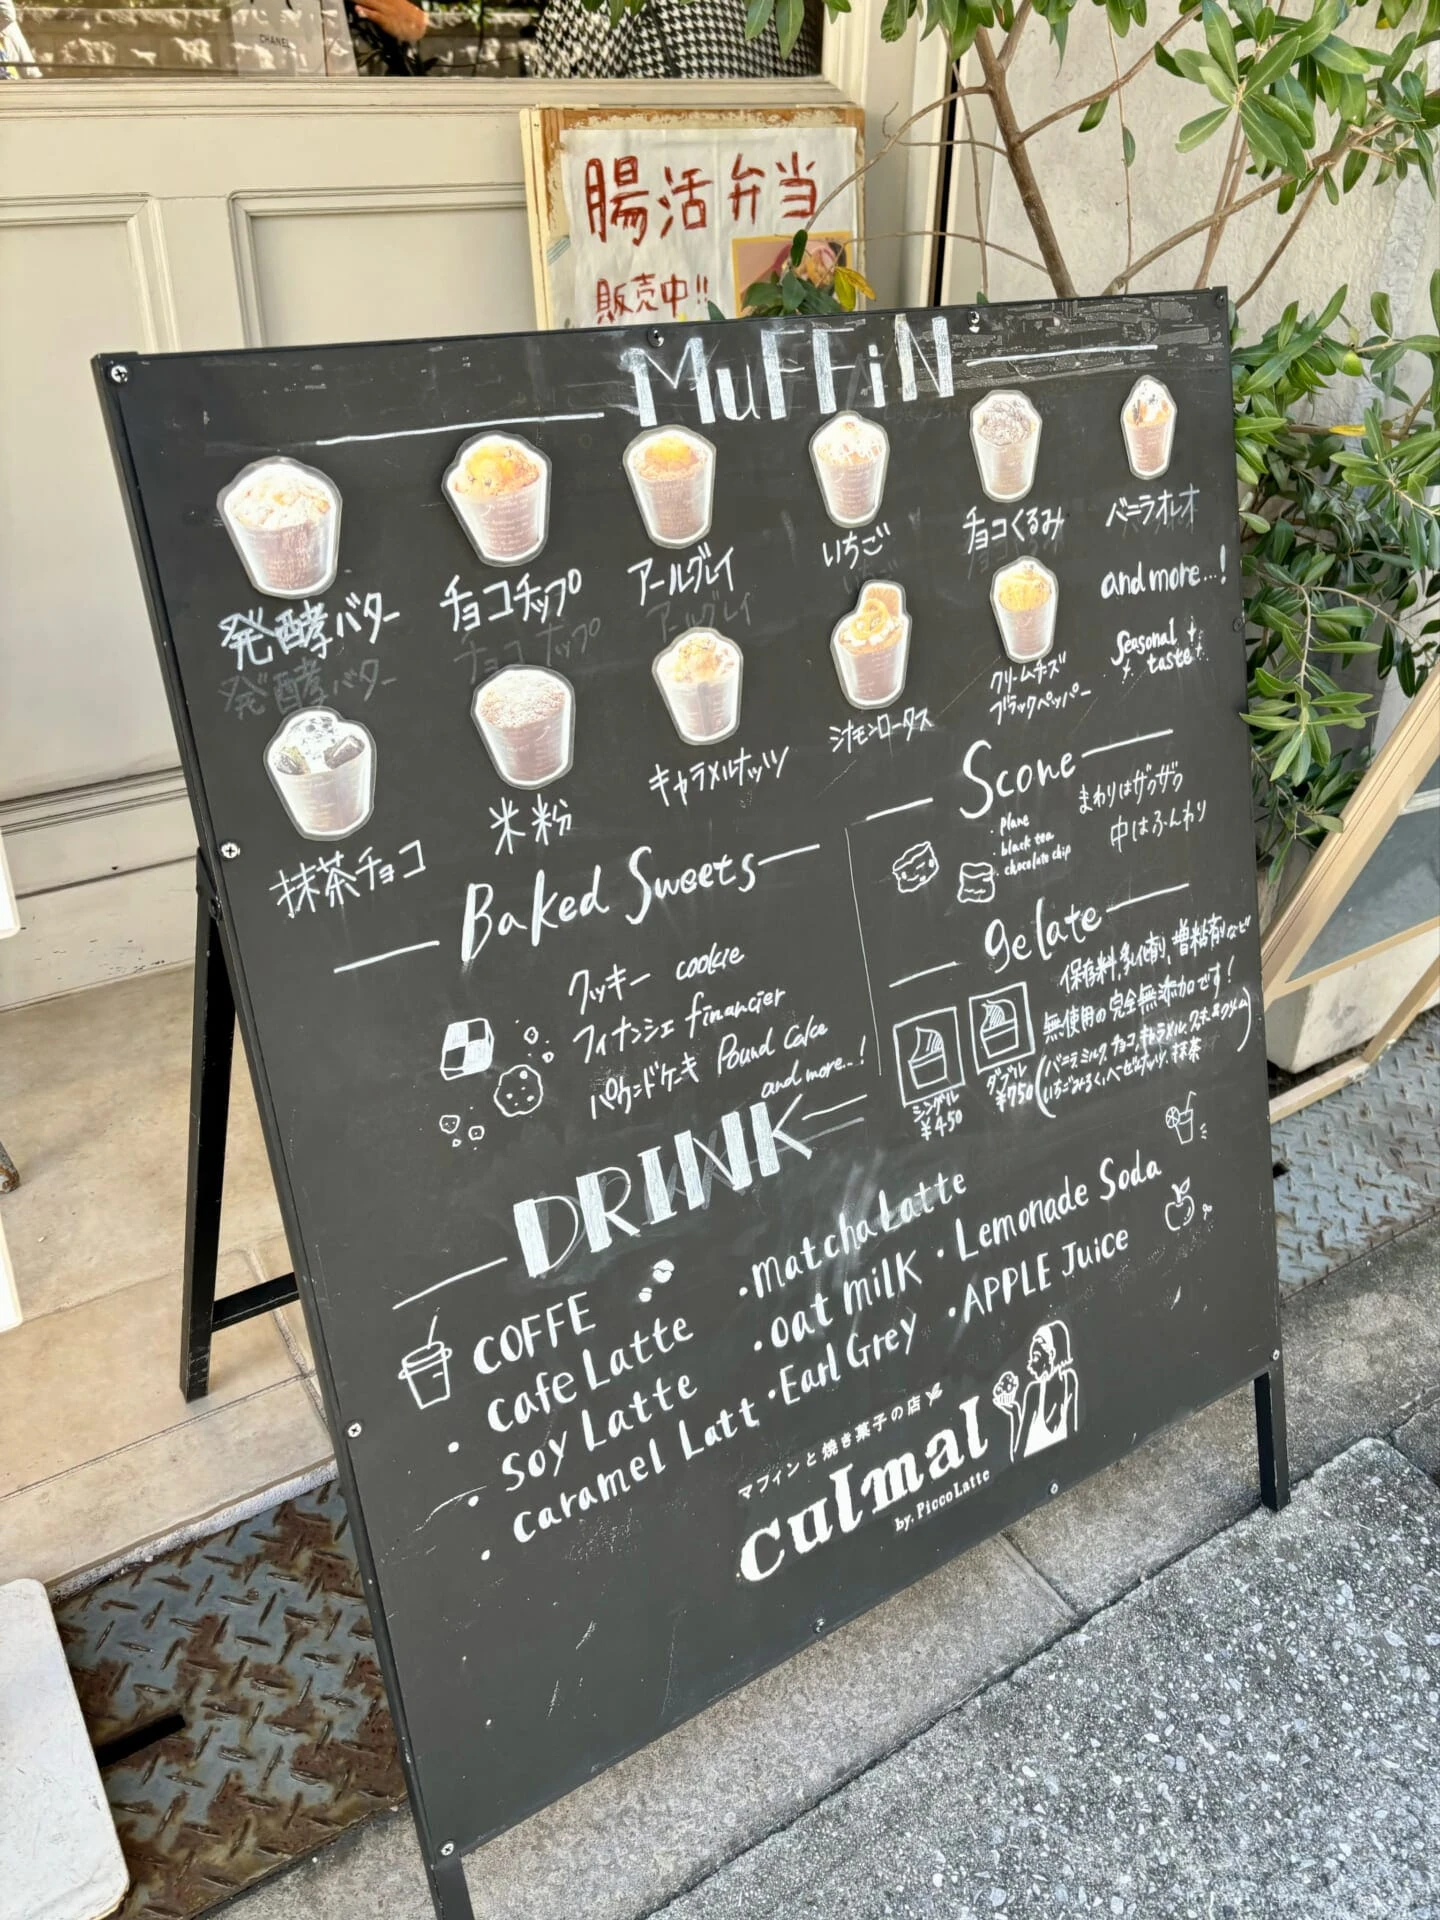 CHANEL
腸活弁当
販売中!!
MuFFiN
発酵バター
チョコチップ
アールグレイ
いちご
チョコくるみ
バニラオレオ
and more...!
Seasonal taste
抹茶チョコ
米粉
キャラメルナッツ
シナモンロータス
クリームチーズ
ブラックペッパー
Baked Sweets
クッキー cookie
フィナンシェ financier
パウンドケーキ Pound Cake
and more...!
Scone
・plane
・black tea
・chocolate chip
まわりはザクザク
中はふんわり
gelate
保存料、乳化剤、増粘剤など
無使用の完全無添加です!
シングル
¥450
ダブル
¥750
DRINK
COFFE
・cafe Latte
・Soy Latte
・caramel Latt
・matcha Latte
・oat milk
・Earl Grey
・Lemonade Soda
・APPLE Juice
マフィンと焼き菓子の店
culmal
by. PiccoLatte